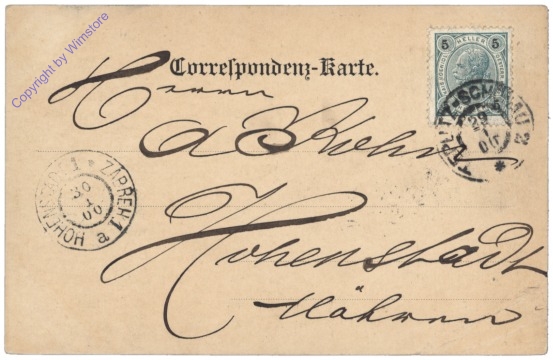 Copyright by Wimstore
5 HELLER 5
Correspondenz-Karte.
Herrn
Kohn
TEPLITZ-SCHÖNAU 2
29
HOHENSTADT 1 * ZÁBŘEH 1
30
1
00
a
Hohenstadt
Mähren